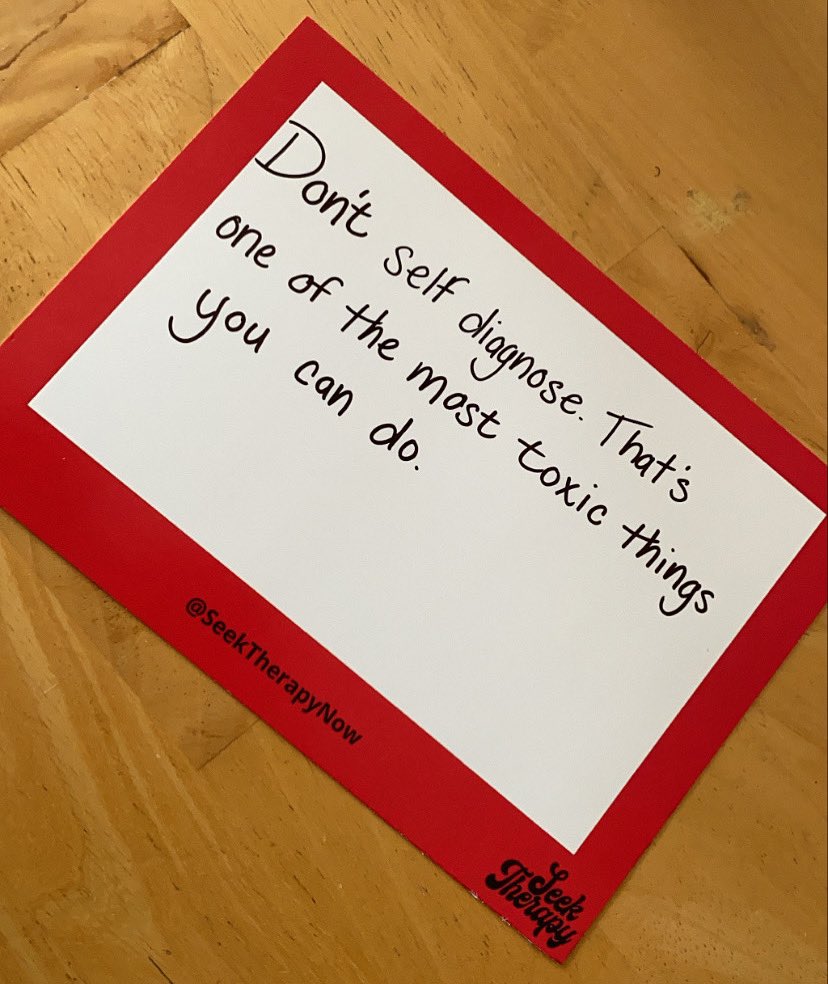 Don't self diagnose. That's
one of the most toxic things
you can do.
@SeekTherapyNow
Seek
Therapy